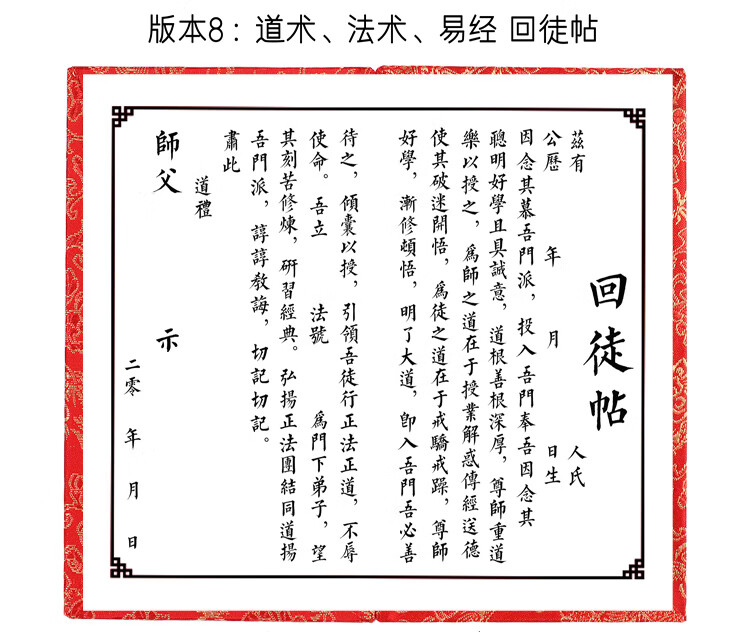 版本8：道术、法术、易经 回徒帖
回徒帖
茲有 人氏
公歷 年 月 日生
因念其慕吾門派，投入吾門奉吾因念其
聰明好學且具誠意，道根善根深厚，尊師重道
樂以授之，爲師之道在于授業解惑傳經送德
使其破迷開悟，爲徒之道在于戒驕戒躁，尊師
好學，漸修頓悟，明了大道，卽入吾門吾必善
待之，傾囊以授，引領吾徒行正法正道，不辱
使命。吾立 法號 爲門下弟子，望
其刻苦修煉，研習經典。弘揚正法團結同道揚
吾門派，諄諄教誨，切記切記。
肅此
道禮
師父 示
二零 年 月 日